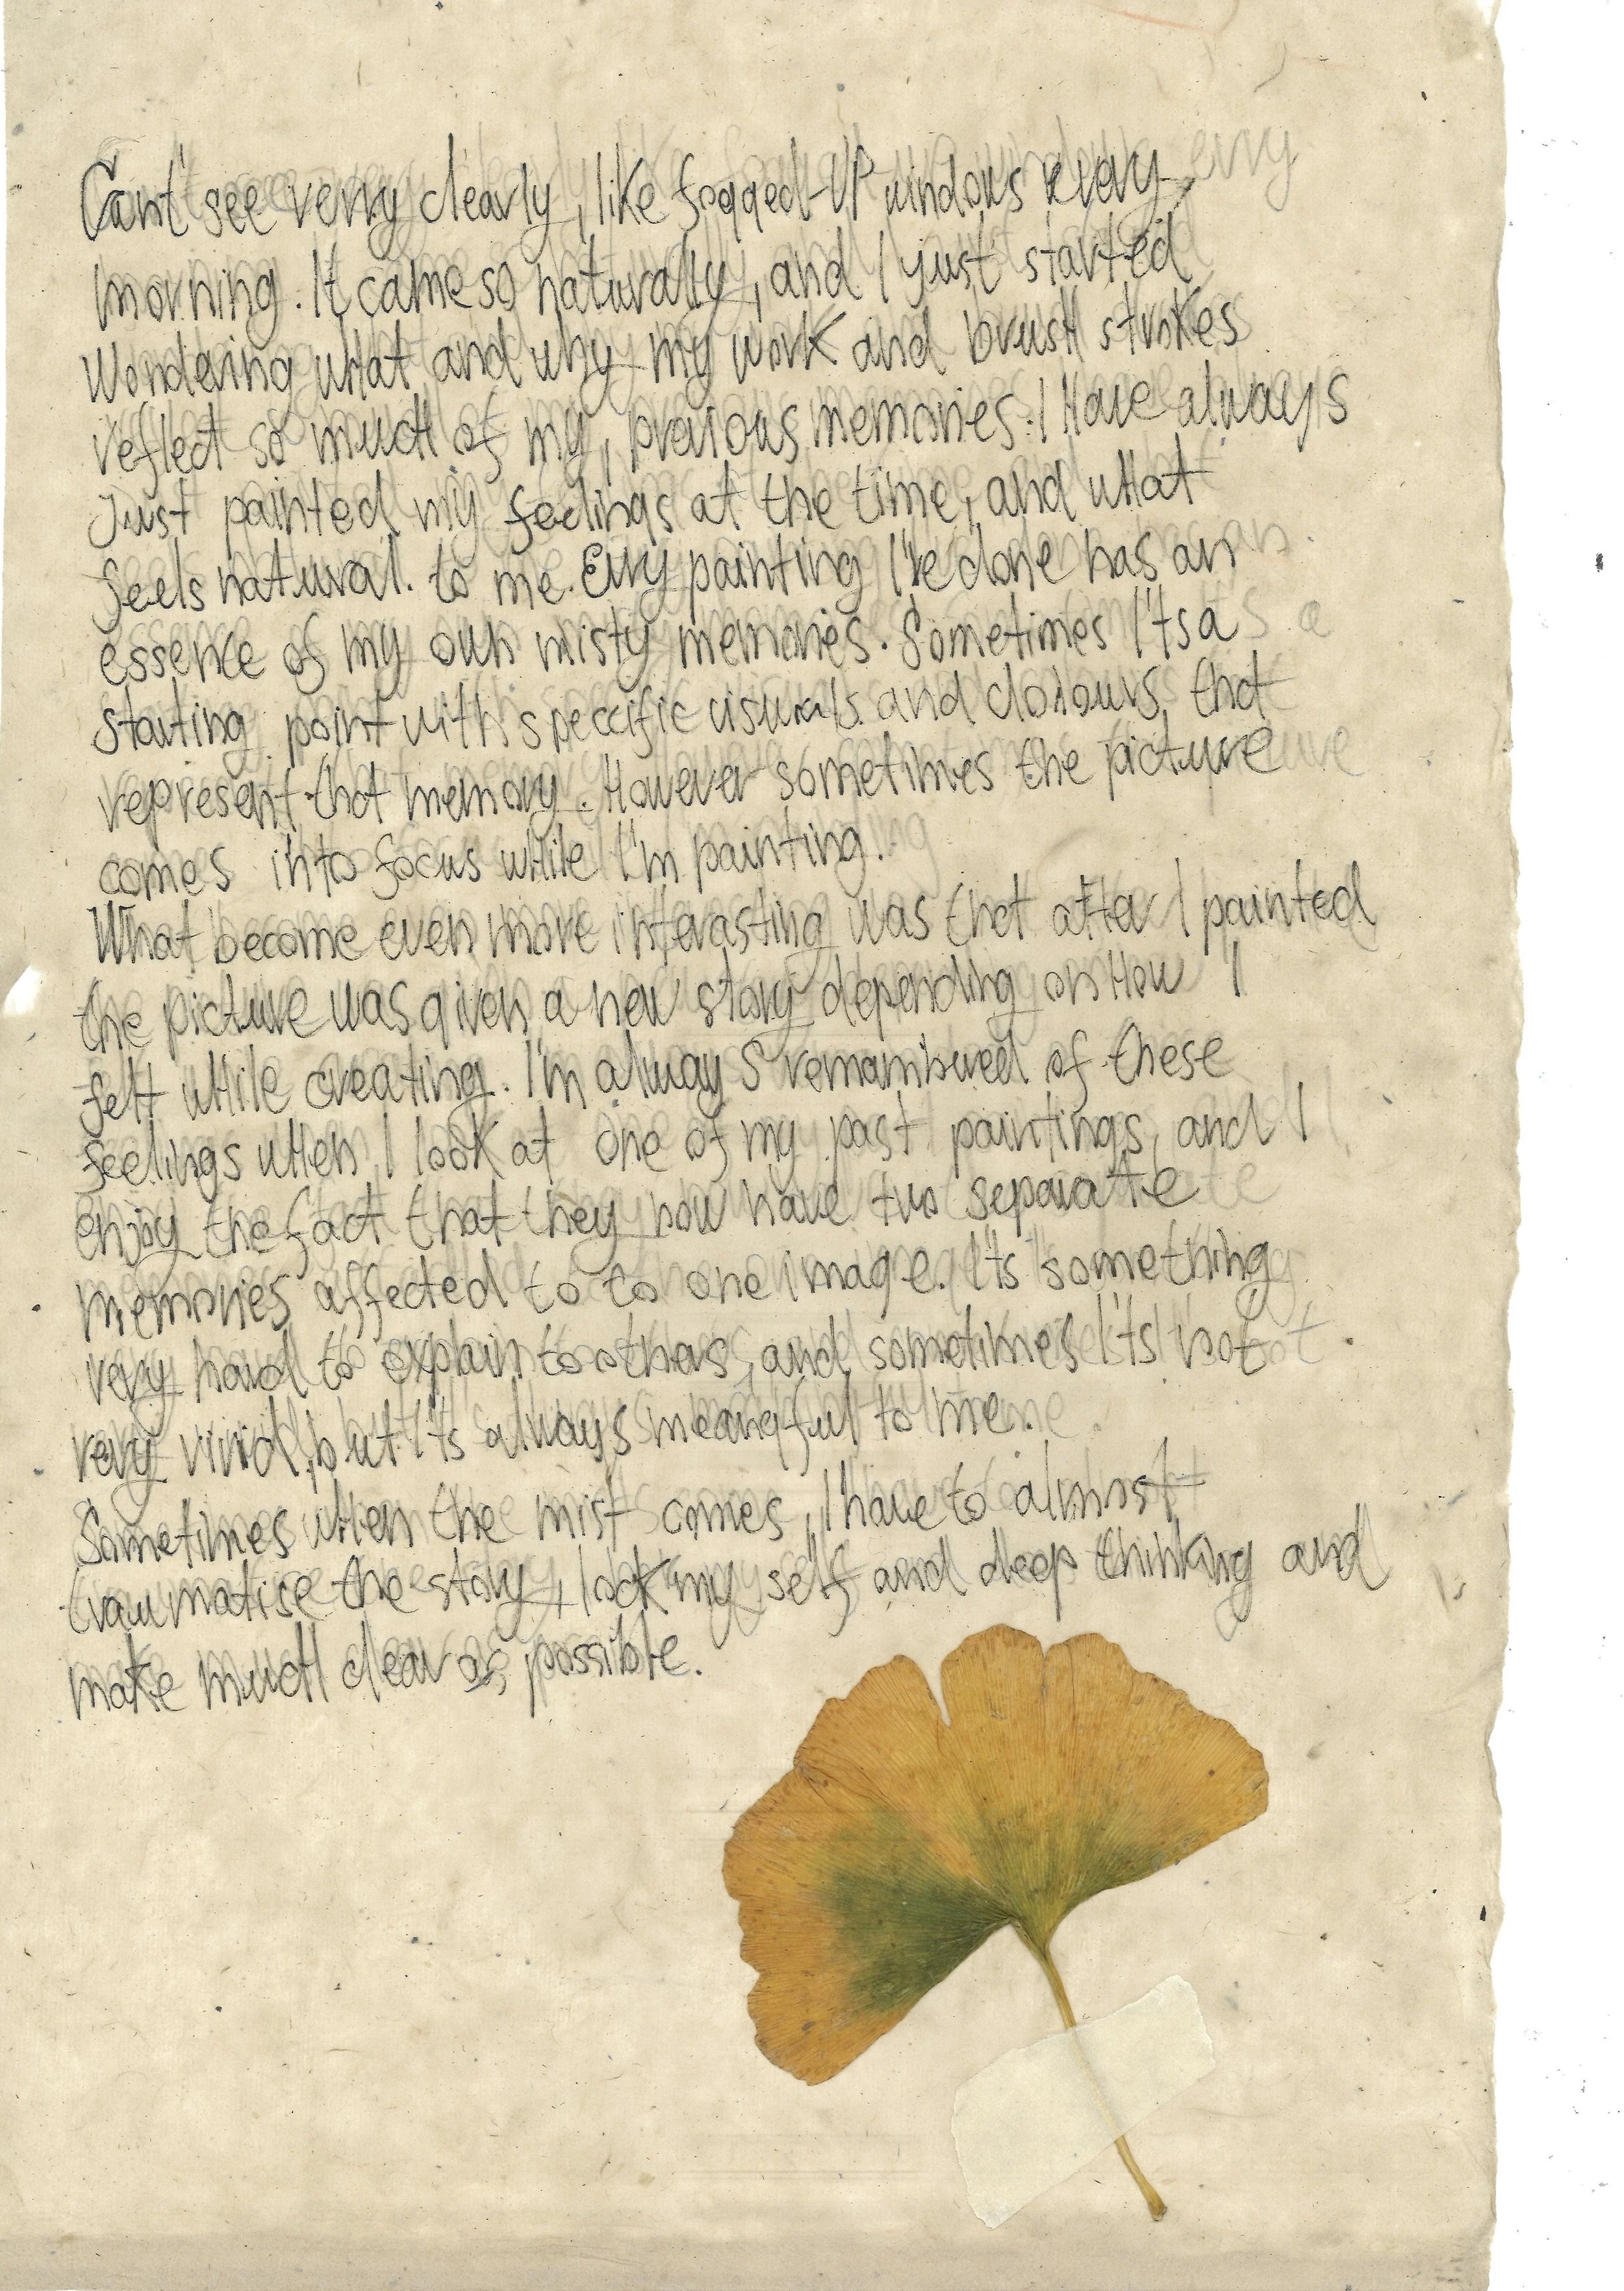 Can't see verry clearly, like fogged-UP windows evry
morning. It came so naturally, and I just started
Wondering what and why my work and brush strokes
reflect so much of my, previous memories. I Have always
Just painted my feelings at the time, and what
feels natural. to me. Evry painting I've done has an
essence of my own misty memories. Sometimes It's a
starting point with speccific visuals and colours, that
represent that memory. However sometimes the picture
comes into focus while I'm painting.
What become even more interasting was that after I painted
the picture was given a new story depending on How I
felt while creating. I'm always remambured of these
feelings when I look at one of my past paintings, and I
enjoy the fact that they now have two separate
memories affected to to one image. It's something
very hard to explain to others, and sometimes It's not
very vivid, but It's always meangful to me.
Sometimes when the mist comes, I have to almost
traumatise the story, lock my self and deep thinking and
make much clear as possible.